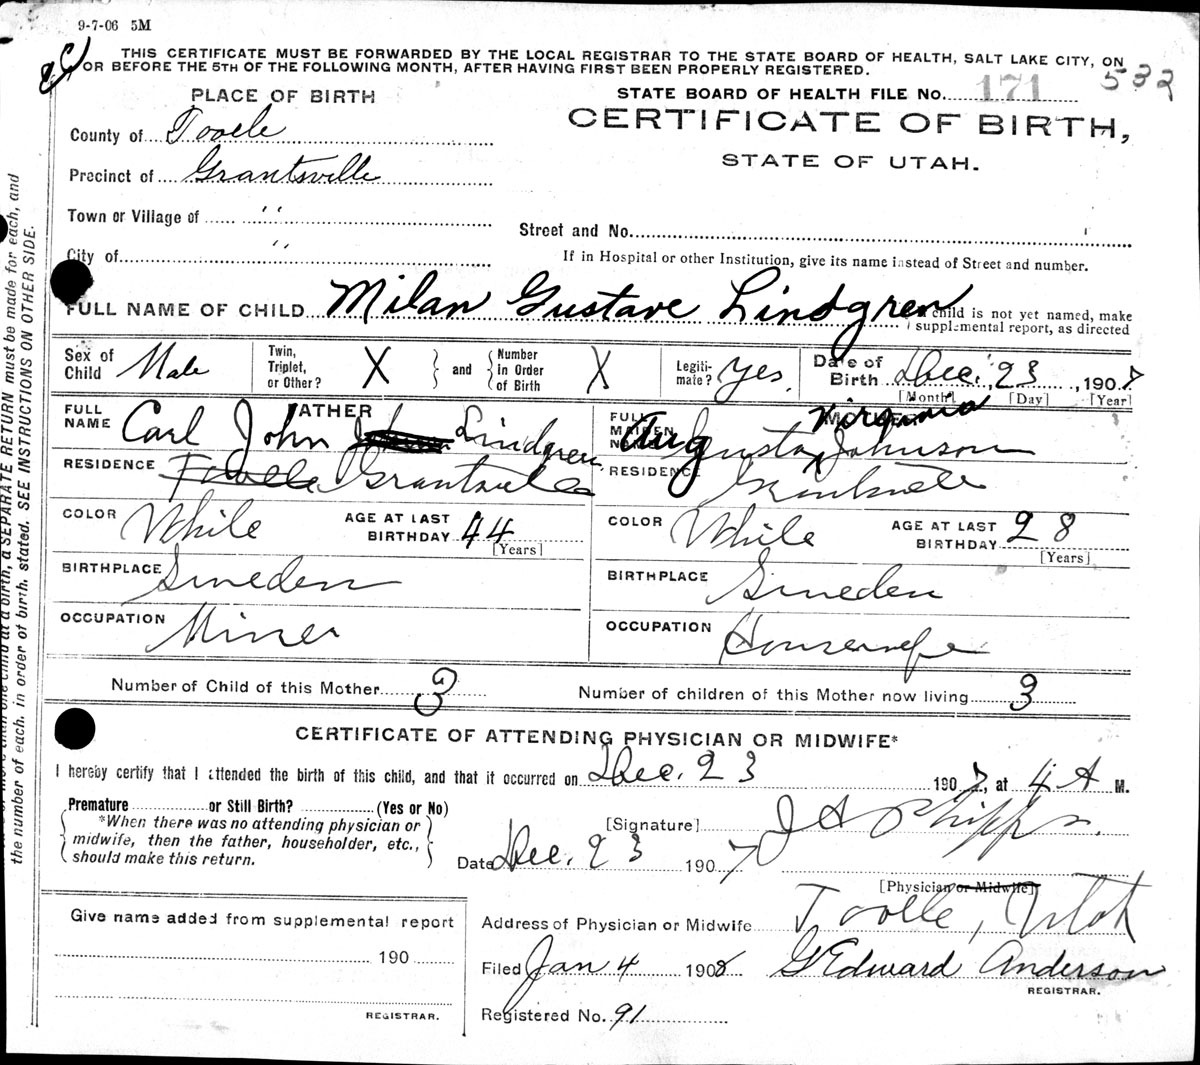 9-7-06 5M
THIS CERTIFICATE MUST BE FORWARDED BY THE LOCAL REGISTRAR TO THE STATE BOARD OF HEALTH, SALT LAKE CITY, ON
OR BEFORE THE 5TH OF THE FOLLOWING MONTH, AFTER HAVING FIRST BEEN PROPERLY REGISTERED.
PLACE OF BIRTH
STATE BOARD OF HEALTH FILE No. 171 532
CERTIFICATE OF BIRTH,
STATE OF UTAH.
County of Tooele
Precinct of Grantsville
Town or Village of "
Street and No.
City of "
If in Hospital or other Institution, give its name instead of Street and number.
FULL NAME OF CHILD Milan Gustave Lindgren
child is not yet named, make
supplemental report, as directed
Sex of Child Male
Twin, Triplet, or Other? X
and
Number in Order of Birth X
Legiti- mate? Yes
Date of Birth Dec. 23, 1907
[Month] [Day] [Year]
FATHER
FULL NAME Carl John Lindgren
MOTHER
FULL MAIDEN NAME Augusta Virginia Johnson
RESIDENCE Tooele Grantsville
RESIDENCE Grantsville
COLOR White
AGE AT LAST BIRTHDAY 44
[Years]
COLOR White
AGE AT LAST BIRTHDAY 28
[Years]
BIRTHPLACE Sweden
BIRTHPLACE Sweden
OCCUPATION Miner
OCCUPATION Housewife
Number of Child of this Mother 3
Number of children of this Mother now living 3
CERTIFICATE OF ATTENDING PHYSICIAN OR MIDWIFE*
I hereby certify that I attended the birth of this child, and that it occurred on Dec. 23 1907, at 4 A M.
Premature or Still Birth? (Yes or No)
*When there was no attending physician or
midwife, then the father, householder, etc.,
should make this return.
[Signature] J A Phipps.
Date Dec. 23 1907
[Physician or Midwife]
Address of Physician or Midwife Tooele, Utah
Give name added from supplemental report
190
REGISTRAR.
Filed Jan 4 1908
G Edward Anderson
REGISTRAR.
Registered No. 91
one child at a birth, a SEPARATE RETURN must be made for each, and
the number of each, in order of birth, stated. SEE INSTRUCTIONS ON OTHER SIDE.